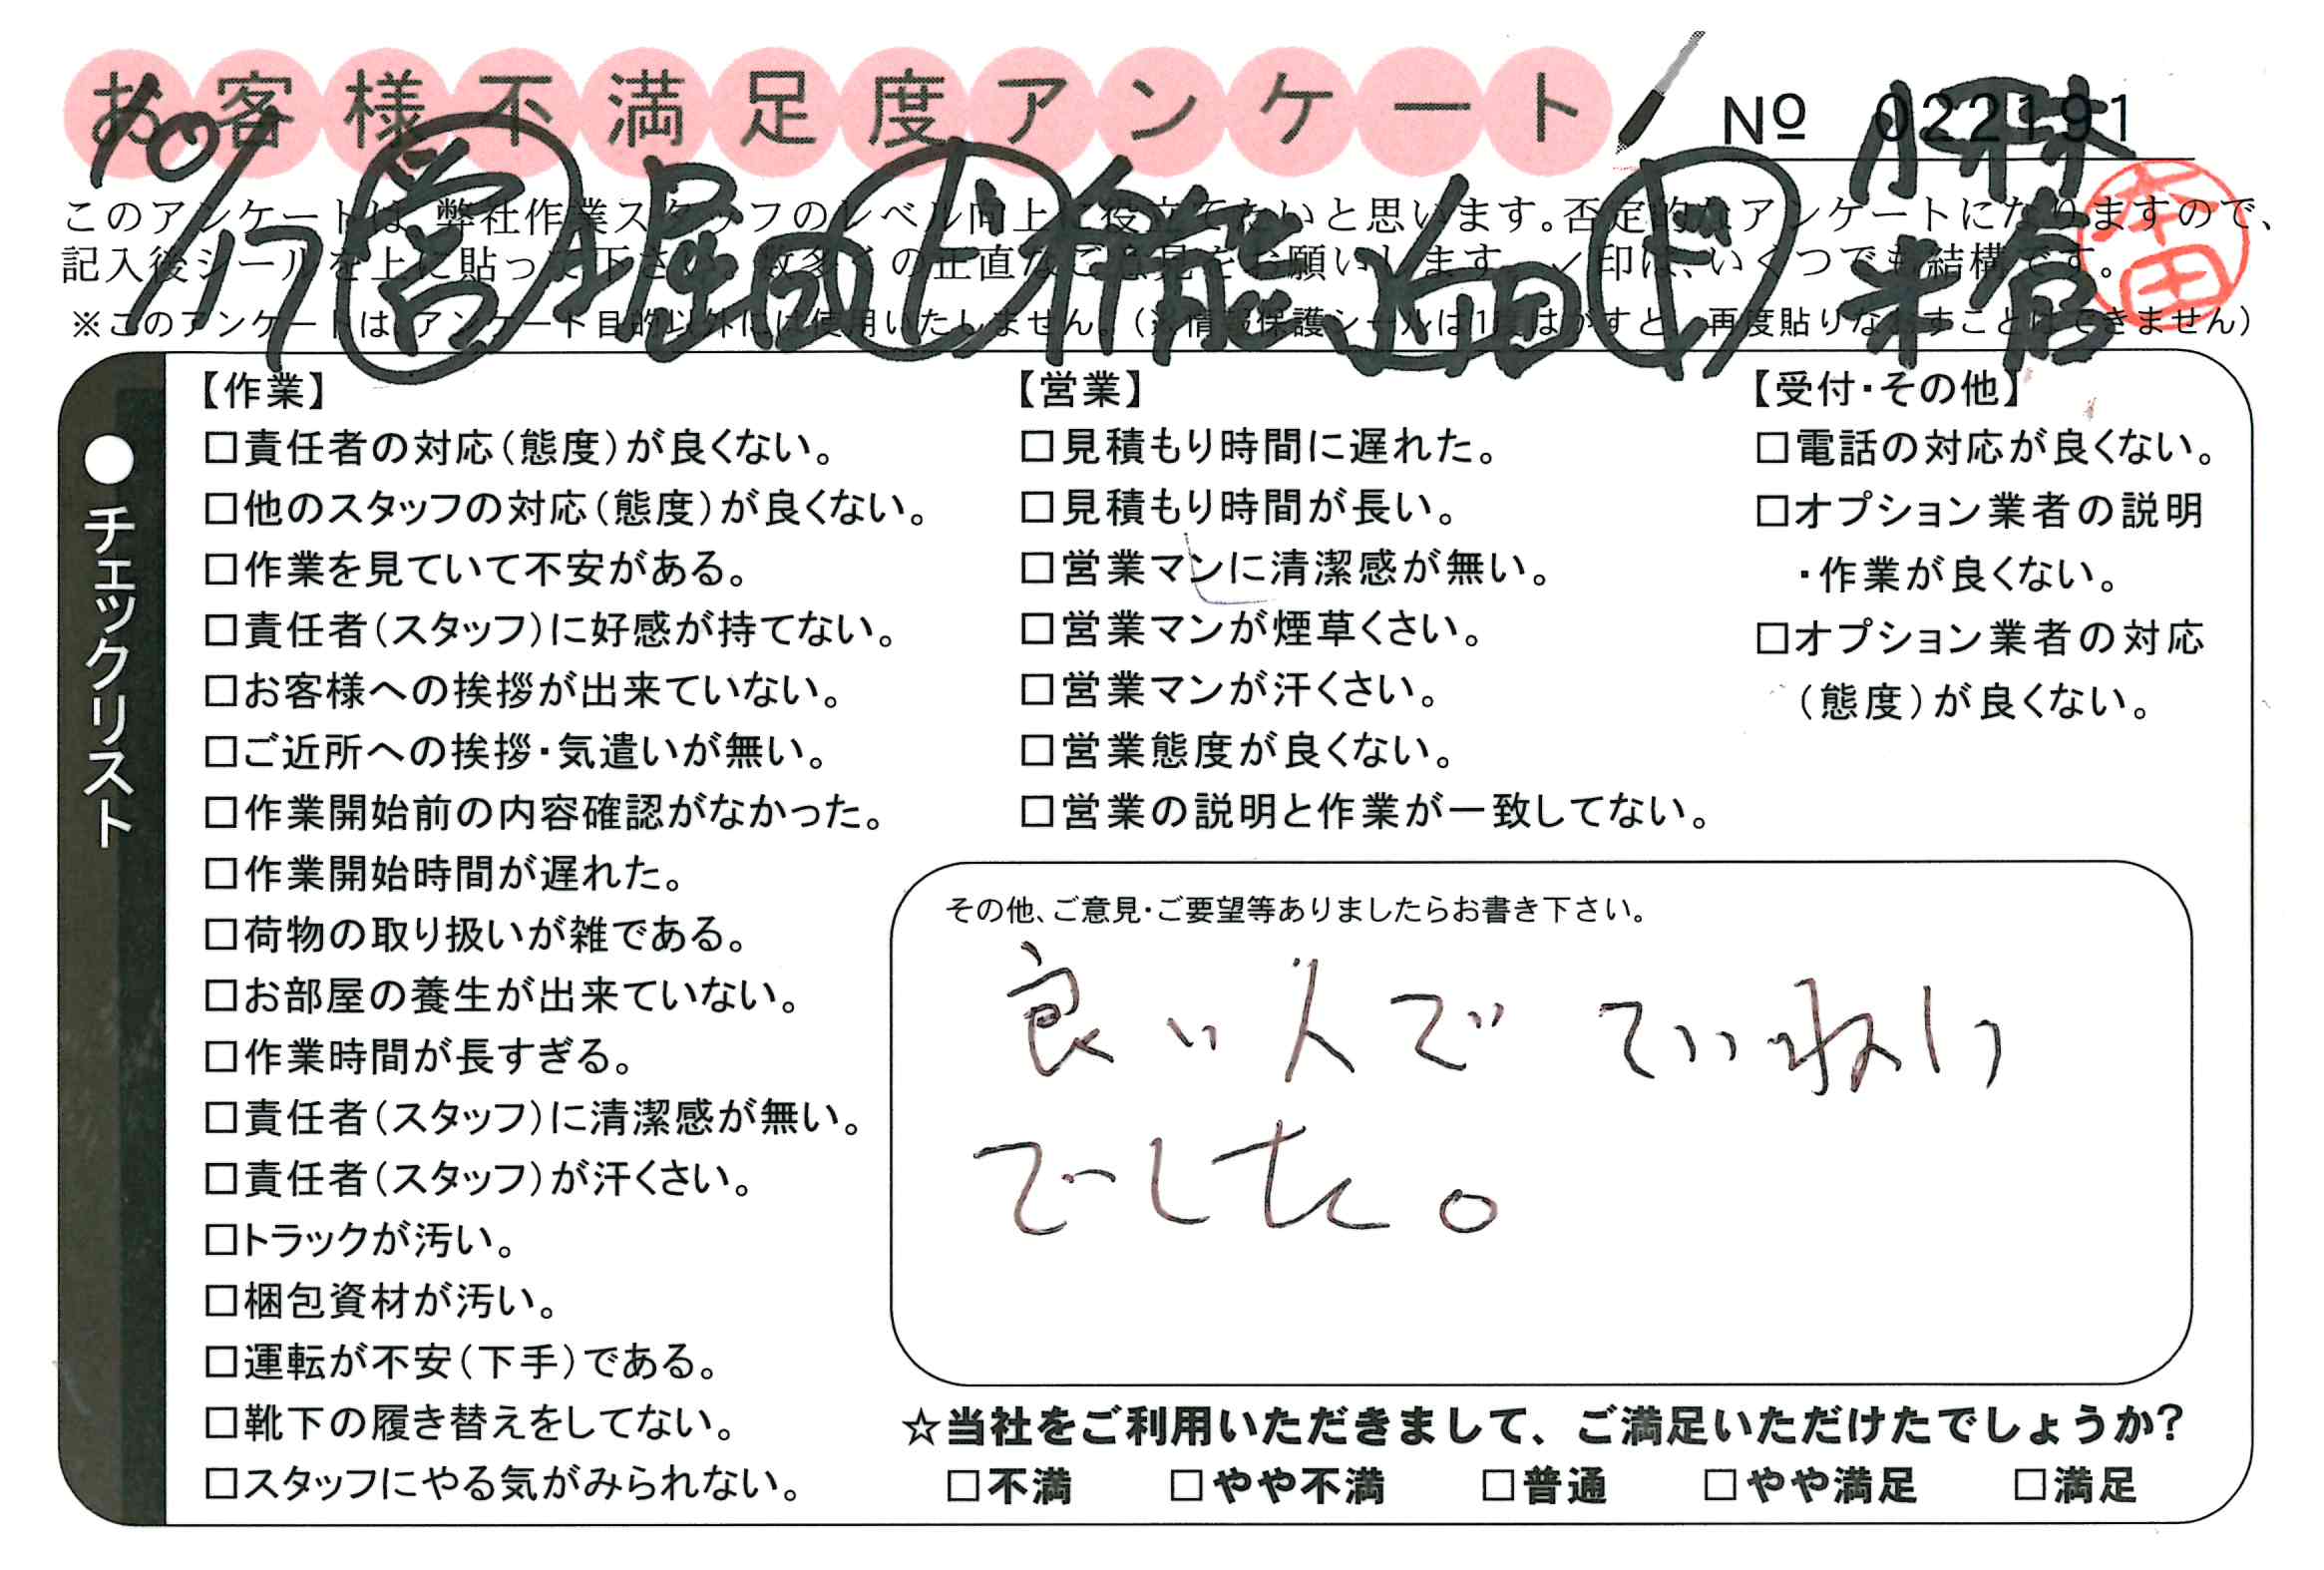 お客様不満足度アンケート
№ 022191
10/17 営 堀田 上 作能 ド 小林
本田
このアンケートは、弊社作業スタッフのレベル向上に役立てたいと思います。否定的なアンケートになりますので、
記入後シールを上に貼って下さい。数多くの正直なご意見をお願いします。✓印は、いくつでも結構です。
※このアンケートは、アンケート目的以外には使用いたしません。(※情報保護シールは1度はがすと、再度貼りなおすことはできません)
●チェックリスト
【作業】
□責任者の対応(態度)が良くない。
□他のスタッフの対応(態度)が良くない。
□作業を見ていて不安がある。
□責任者(スタッフ)に好感が持てない。
□お客様への挨拶が出来ていない。
□ご近所への挨拶・気遣いが無い。
□作業開始前の内容確認がなかった。
□作業開始時間が遅れた。
□荷物の取り扱いが雑である。
□お部屋の養生が出来ていない。
□作業時間が長すぎる。
□責任者(スタッフ)に清潔感が無い。
□責任者(スタッフ)が汗くさい。
□トラックが汚い。
□梱包資材が汚い。
□運転が不安(下手)である。
□靴下の履き替えをしてない。
□スタッフにやる気がみられない。
【営業】
□見積もり時間に遅れた。
□見積もり時間が長い。
□営業マンに清潔感が無い。
□営業マンが煙草くさい。
□営業マンが汗くさい。
□営業態度が良くない。
□営業の説明と作業が一致してない。
【受付・その他】
□電話の対応が良くない。
□オプション業者の説明
・作業が良くない。
□オプション業者の対応
(態度)が良くない。
その他、ご意見・ご要望等ありましたらお書き下さい。
良い人で ていねい
でした。
☆当社をご利用いただきまして、ご満足いただけたでしょうか?
□不満 □やや不満 □普通 □やや満足 □満足